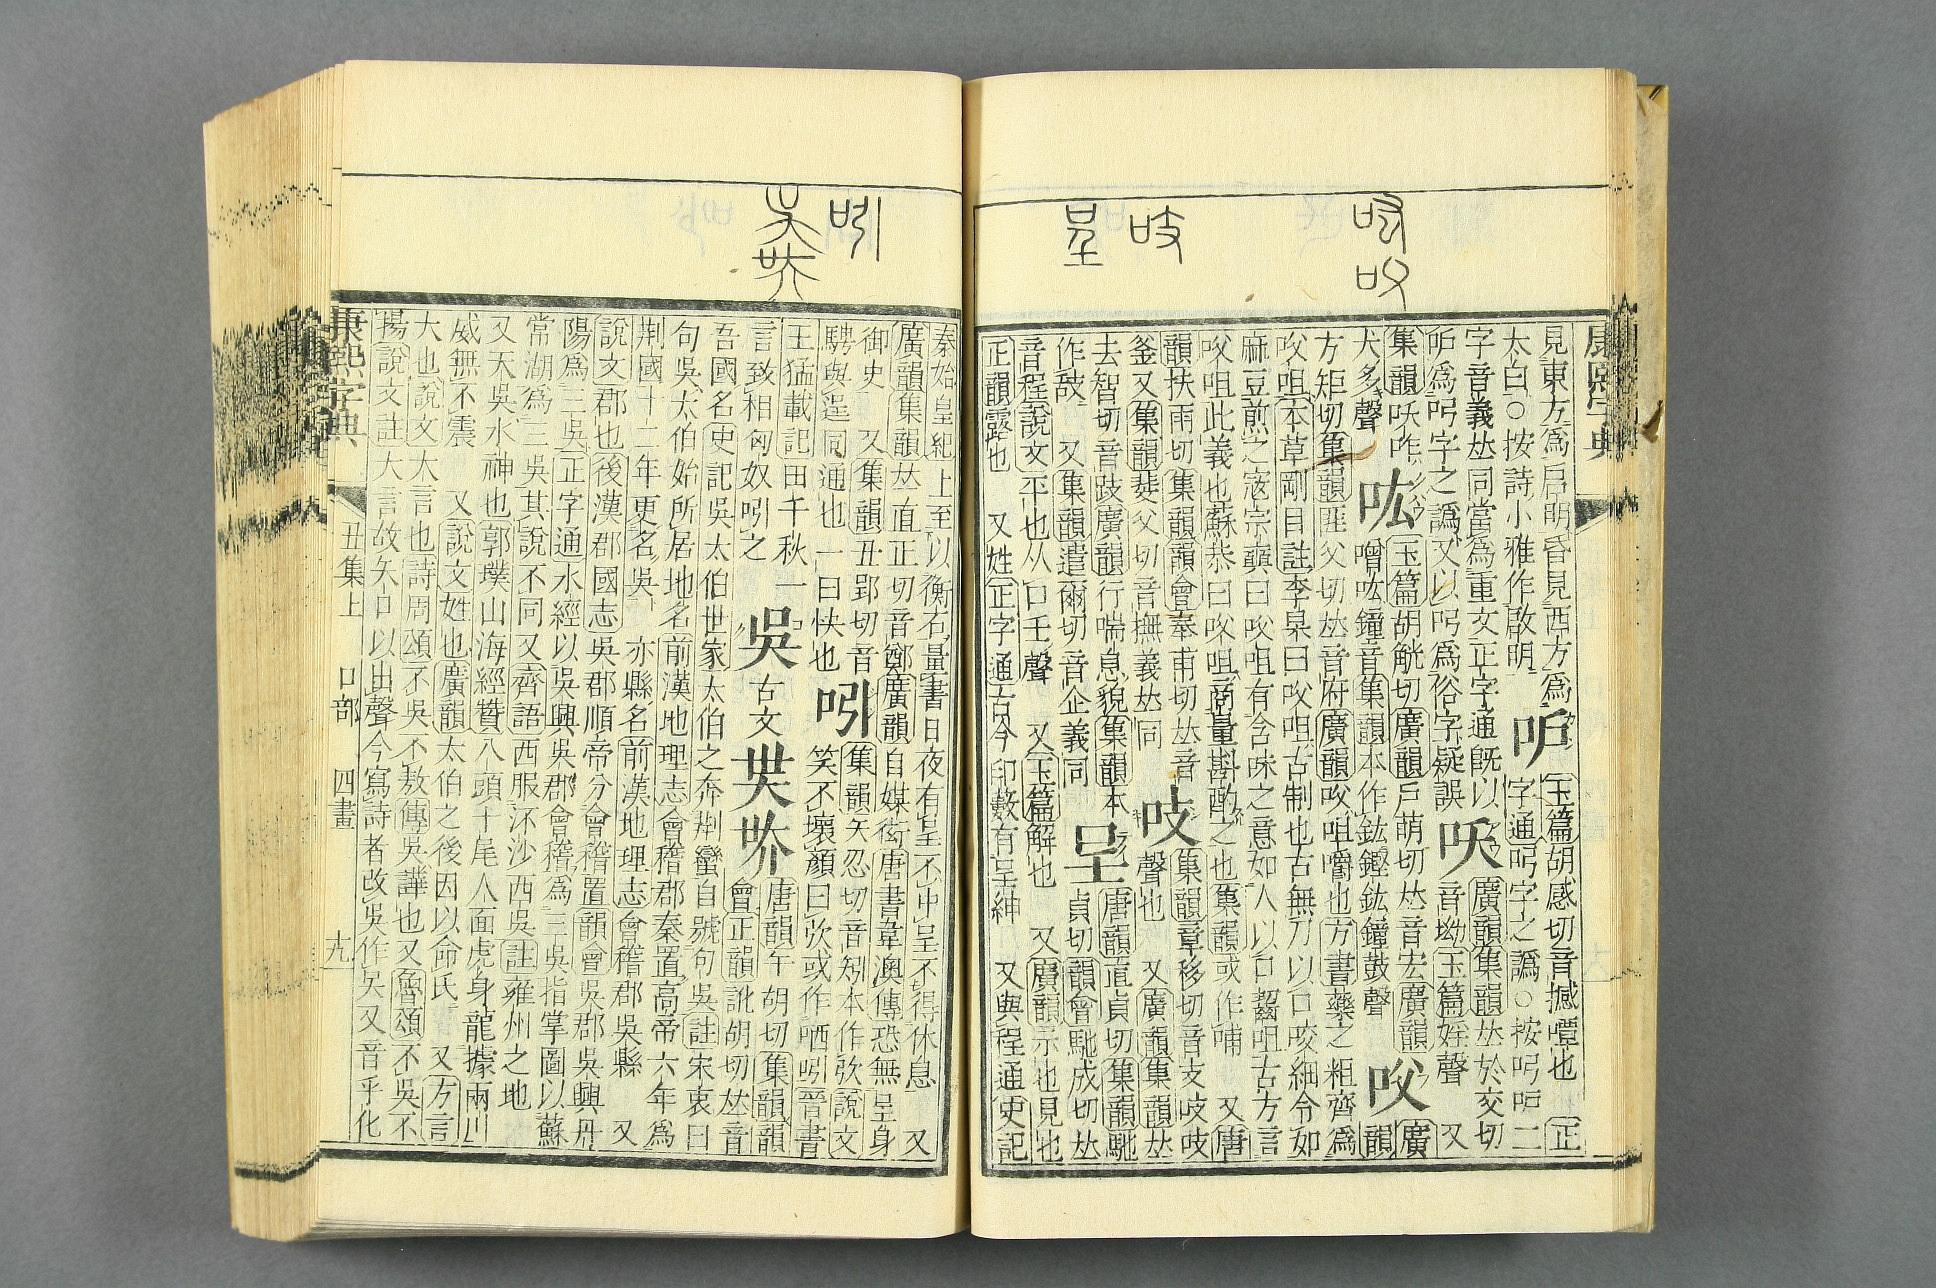 康熙字典
見東方爲启明昏見西方爲
太白○按詩小雅作啟明
㕾
玉篇胡感切音撼㖤也 正
字通呺字之譌○按呺㕾二
字音義𠀤同當爲重文正字通旣以
㕾爲呺字之譌又以呺爲俗字疑誤
㕭
廣韻集韻𠀤於交切
音坳玉篇婬聲 又
集韻㕭咋
犬多聲
吰
玉篇胡觥切廣韻戶萌切𠀤音宏廣韻
噌吰鐘音集韻本作鈜鏗鈜鐘鼓聲
㕮
廣
韻
方矩切集韻匪父切𠀤音府廣韻㕮咀嚼也方書藥之粗齊爲
㕮咀本草剛目註李杲曰㕮咀古制也古無刀以口咬細令如
麻豆煎之寇宗奭曰㕮咀有含味之意如人以口齧咀古方言
㕮咀此義也蘇恭曰㕮咀商量斟酌之也集韻或作哺 又唐
韻扶雨切集韻韻會奉甫切𠀤音
釜又集韻蜚父切音撫義𠀤同
吱
集韻章移切音支吱吱
聲也 又廣韻集韻𠀤
去智切音跂廣韻行喘息貌集韻本
作 又集韻遣爾切音企義同
呈
唐韻直貞切集韻馳
貞切韻會馳成切𠀤
音程說文平也从口壬聲 又玉篇解也 又廣韻示也見也
正韻露也 又姓正字通古今印藪有呈紳 又與程通史記
吱
呈
秦始皇紀上至以衡石量書日夜有呈不中呈不得休息 又
廣韻集韻𠀤直正切音鄭廣韻自媒衒唐書韋澳傳恐無呈身
御史 又集韻丑郢切音
騁與逞同通也一曰快也
吲
集韻矢忍切音矧本作弞說文
笑不壞顏曰弞或作哂吲晉書
王猛載記田千秋一
言致相匈奴吲之
吳
古文
𡗾
唐韻午胡切集韻韻
會正韻訛胡切𠀤音
吾國名史記吳太伯世家太伯之奔荆蠻自號句吳註宋衷曰
句吳太伯始所居地名前漢地理志會稽郡秦置高帝六年爲
荆國十二年更名吳 亦縣名前漢地理志會稽郡吳縣 又
說文郡也後漢郡國志吳郡順帝分會稽置韻會吳郡吳興丹
陽爲三吳正字通水經以吳興吳郡會稽爲三吳指掌圖以蘇
常湖爲三吳其說不同又齊語西服沠沙西吳註雍州之地
又天吳水神也郭璞山海經贊八頭十尾人面虎身龍據兩川
威無不震 又說文姓也廣韻太伯之後因以命氏 又方言
大也說文大言也詩周頌不吳不敖傳吳譁也又魯頌不吳不
揚說文註大言故矢口以出聲今寫詩者改吳作吴又音乎化
吲
康熙字典 丑集上 口部 四畫 十九